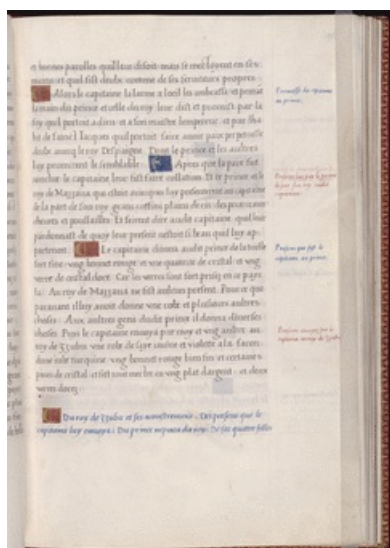 et bonnes parolles quil leur disoit mais se mectoyent en ses
mains et quil fist deulx comme de ses serviteurs propres
Alors le capitaine la larme a loeil les embrassa et prenant
la main du prince et celle du roy leur dist et promist par la
foy quil portoit a dieu et a son maistre lempereur et par lha
bit de sainct Jacques quil portoit faire avoir paix perpetuelle
deulx avecq le roy Despaigne Dont le prince et les aultres
luy promirent le semblable Apres que la paix fut
conclue le capitaine leur fist faire collation Et ce prince et le
roy de Mazzana qui estoit avecques luy presenterent au capitaine
de la part de son roy grans coffins plains de riz des pourceaux
chevres et poullailles Et feirent dire audit capitaine quil leur
pardonnast de quoy leur present nestoit si beau quil luy ap
partenoit Le capitaine donna audit prince de la toille
fort fine ung bonnet rouge et une quantite de cristal et ung
verre de cristal doré Car les verres sont fort prisez en ce pays
la Au roy de Mazzana ne fist aulcun present Pour ce que
paravant il luy avoit donné une robe et plusieurs autres
choses Aux autres gens dudit prince il donna diverses
choses Puis le capitaine envoya par moy et ung autre au
roy de Zzubu une robe de soye jaulne et violette a la facon
dune robe turquine ung bonnet rouge bien fin et certaines
pieces de cristal et fist tout mectre en ung plat dargent et deux
verres dorez
Du roy de Zzubu et ses accoustremens Des presens que le
capitaine luy envoya Du prince nepveu du roy De ses quatre filles